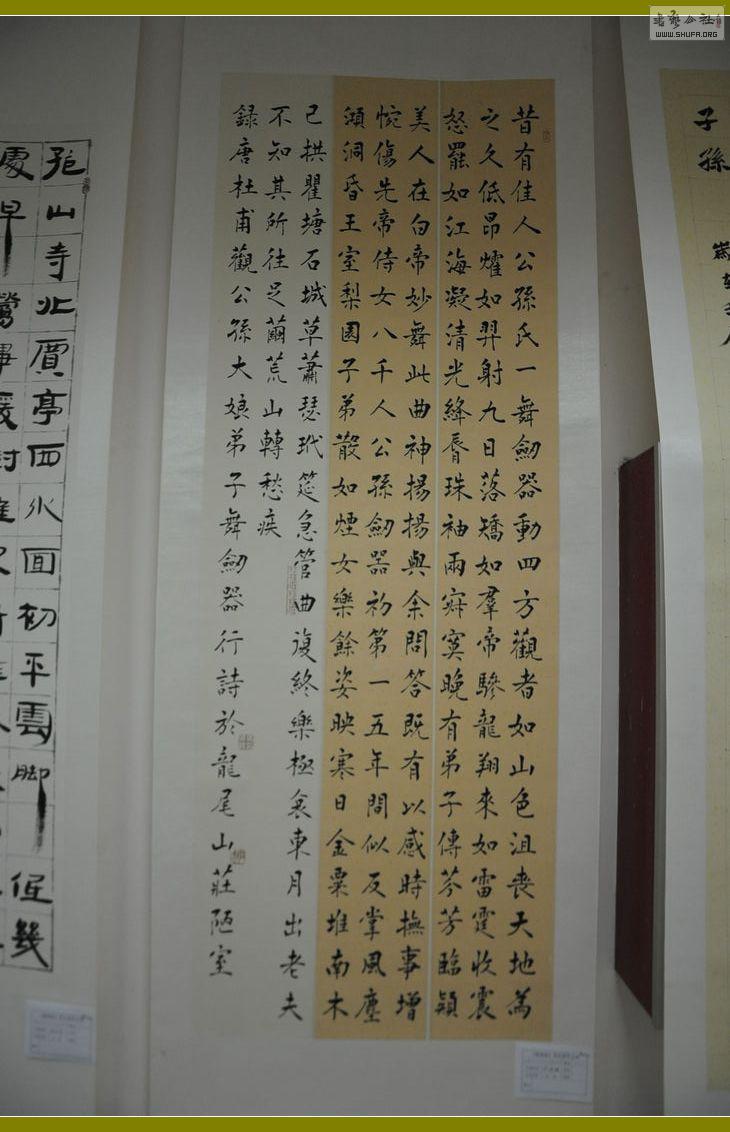 昔有佳人公孫氏一舞劒器動四方觀者如山色沮喪天地為
之久低昂㸌如羿射九日落矯如羣帝驂龍翔來如雷霆收震
怒罷如江海凝清光絳脣珠袖兩寂寞晚有弟子傳芬芳臨潁
美人在白帝妙舞此曲神揚揚與余問答既有以感時撫事增
惋傷先帝侍女八千人公孫劒器初第一五年間似反掌風塵
澒洞昏王室梨園子弟散如煙女樂餘姿映寒日金粟堆南木
已拱瞿塘石城草蕭瑟玳筵急管曲復終樂極哀東月出老夫
不知其所往足繭荒山轉愁疾
録唐杜甫觀公孫大娘弟子舞劒器行詩於龍尾山莊陋室
孤山寺北賈亭西水面初平雲脚低幾
處早鶯
子孫
WWW.SHUFA.ORG